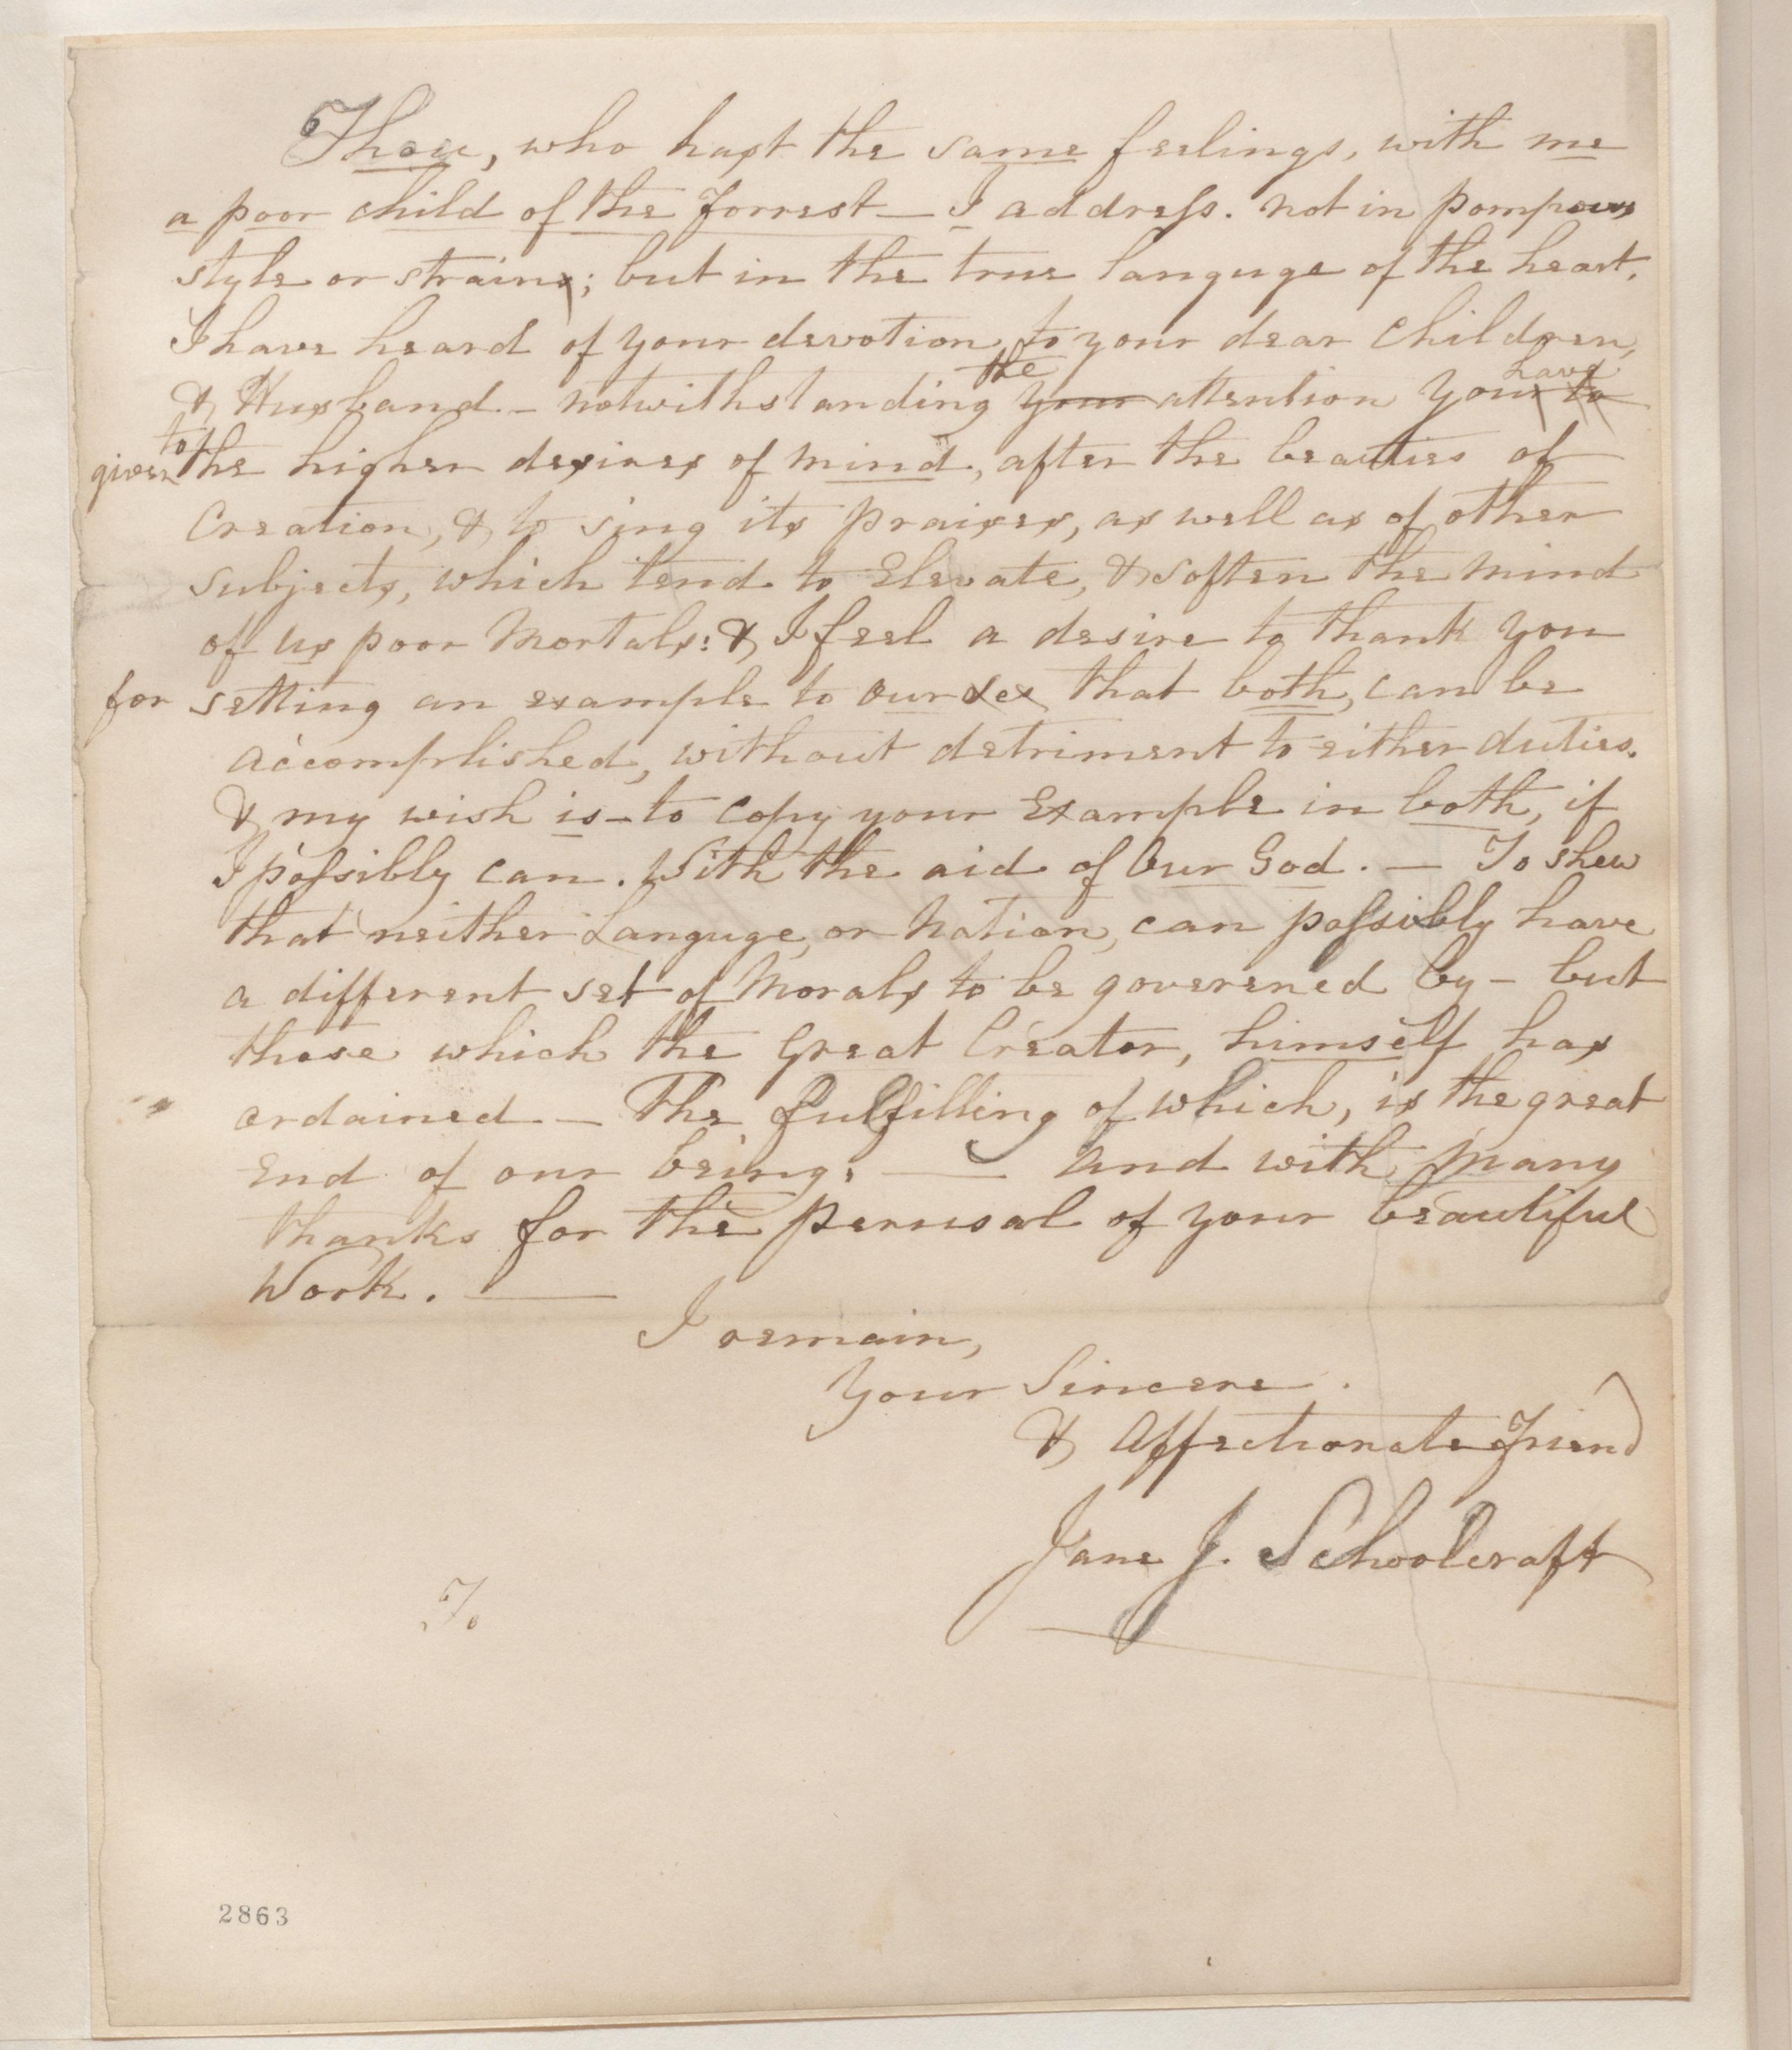 Thou, who hast the same feelings, with me
a poor child of the Forrest — I address. not in pompous
style or strain; but in the true languge of the heart.
I have heard of your devotion to your dear Children,
& Husband. – notwithstanding the your attention you have to
given to the higher desires of mind, after the beauties of
Creation, & to sing its praises, as well as of other
subjects, which tend to Elevate, & soften the mind
of us poor Mortals: & I feel a desire to thank you
for setting an example to our sex that both, can be
accomplished, without detriment to either duties.
& my wish is – to copy your Example in both, if
I possibly can. With the aid of Our God. — To shew
that neither Languge, or Nation, can possibly have
a different set of Morals to be governed by – but
those which the Great Creator, himself has
ordained — The fulfilling of which, is the great
End of our being. — and with many
thanks for the perusal of your beautiful
Work. —
I remain,
Your Sincere.
& Affectionate Friend
Jane J. Schoolcraft
To
2863